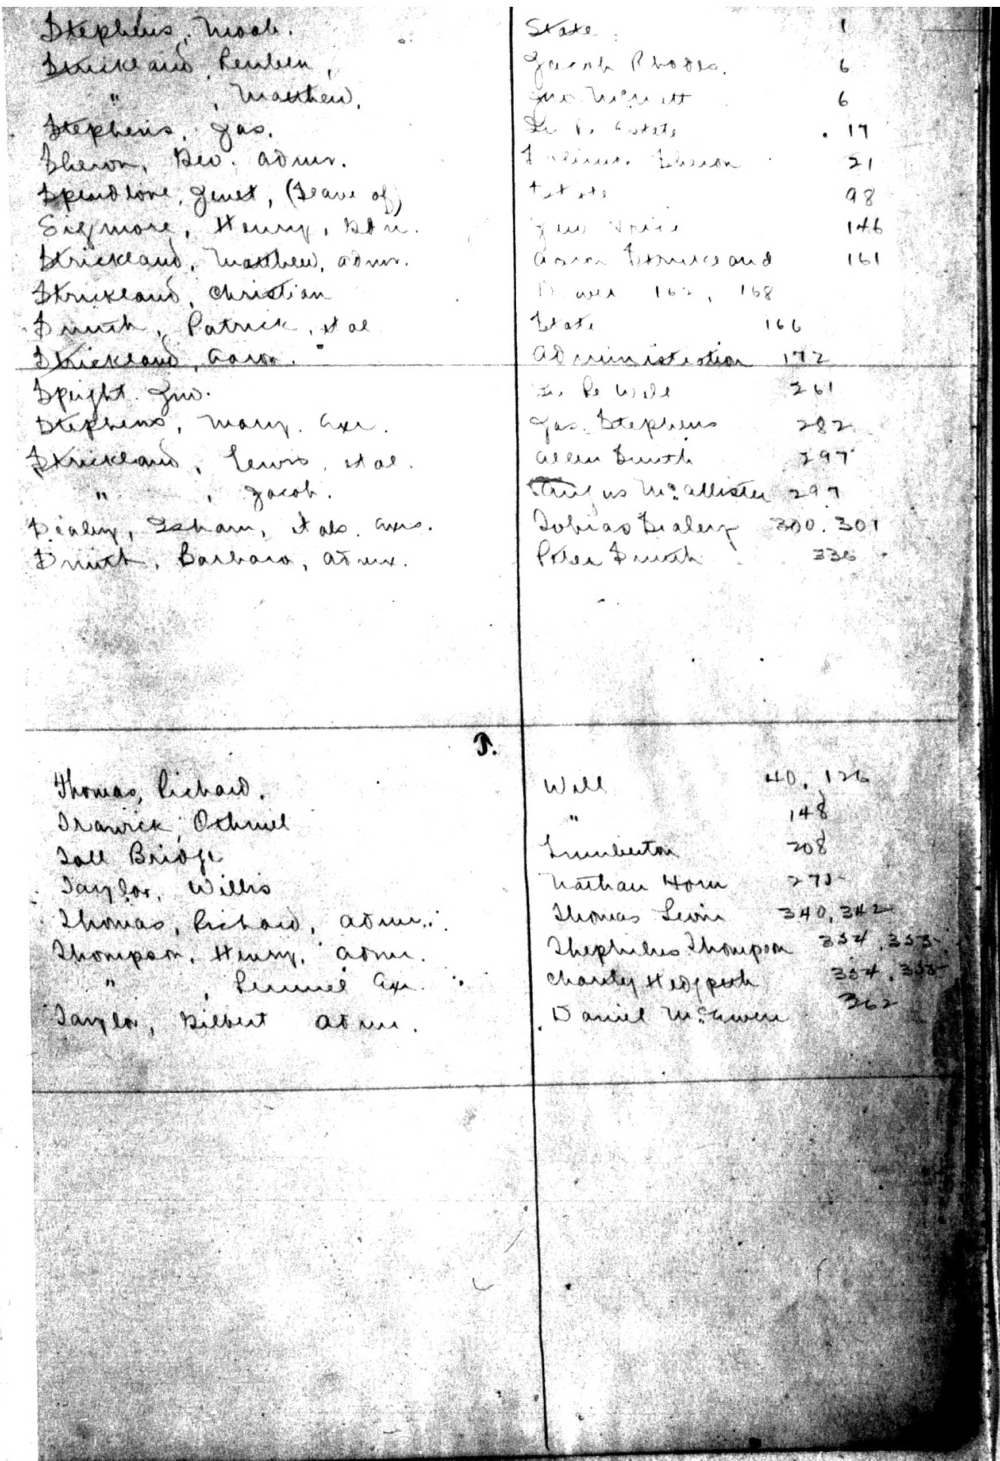 Stephens, Noah. State 1
Strickland, Reuben, Jacob Rhodes. 6
" , Matthew, Jno 6
Stephens, Jas. In Re Estate 17
Sheron, Admr. Sheron 21
Spendlove, Jenet, (Leave of) Estate 98
Henry, Jno 146
Strickland, Matthew, admr. Aaron Strickland 161
Strickland, Christian Dower 162, 168
Smith, Patrick, et al State 166
Strickland, Aaron. Administration 172
Speight. Jno. In Re Will 261
Stephens, Mary. Exr. Jas. Stephens 282
Strickland, Lewis, et al. Allen Smith 297
" , Jacob. Angus McAllister 297
Sealey, Isham, et als. Exrs. Tobias Sealey 300. 301
Smith, Barbara, admx. Peter Smith 336
T.
Thomas, Richard. Will 40, 126
Trawick, Othniel " 148
Toll Bridge Lumberton 208
Taylor, Willis Nathan Horn 275
Thomas, Richard, admr. Thomas Lewis 340, 342
Thompson, Henry, admr. Thephilus Thompson 354, 355
" , Lemuel Exr. Charity Hedgpeth 354, 355
Taylor, Gilbert admr. Daniel 362